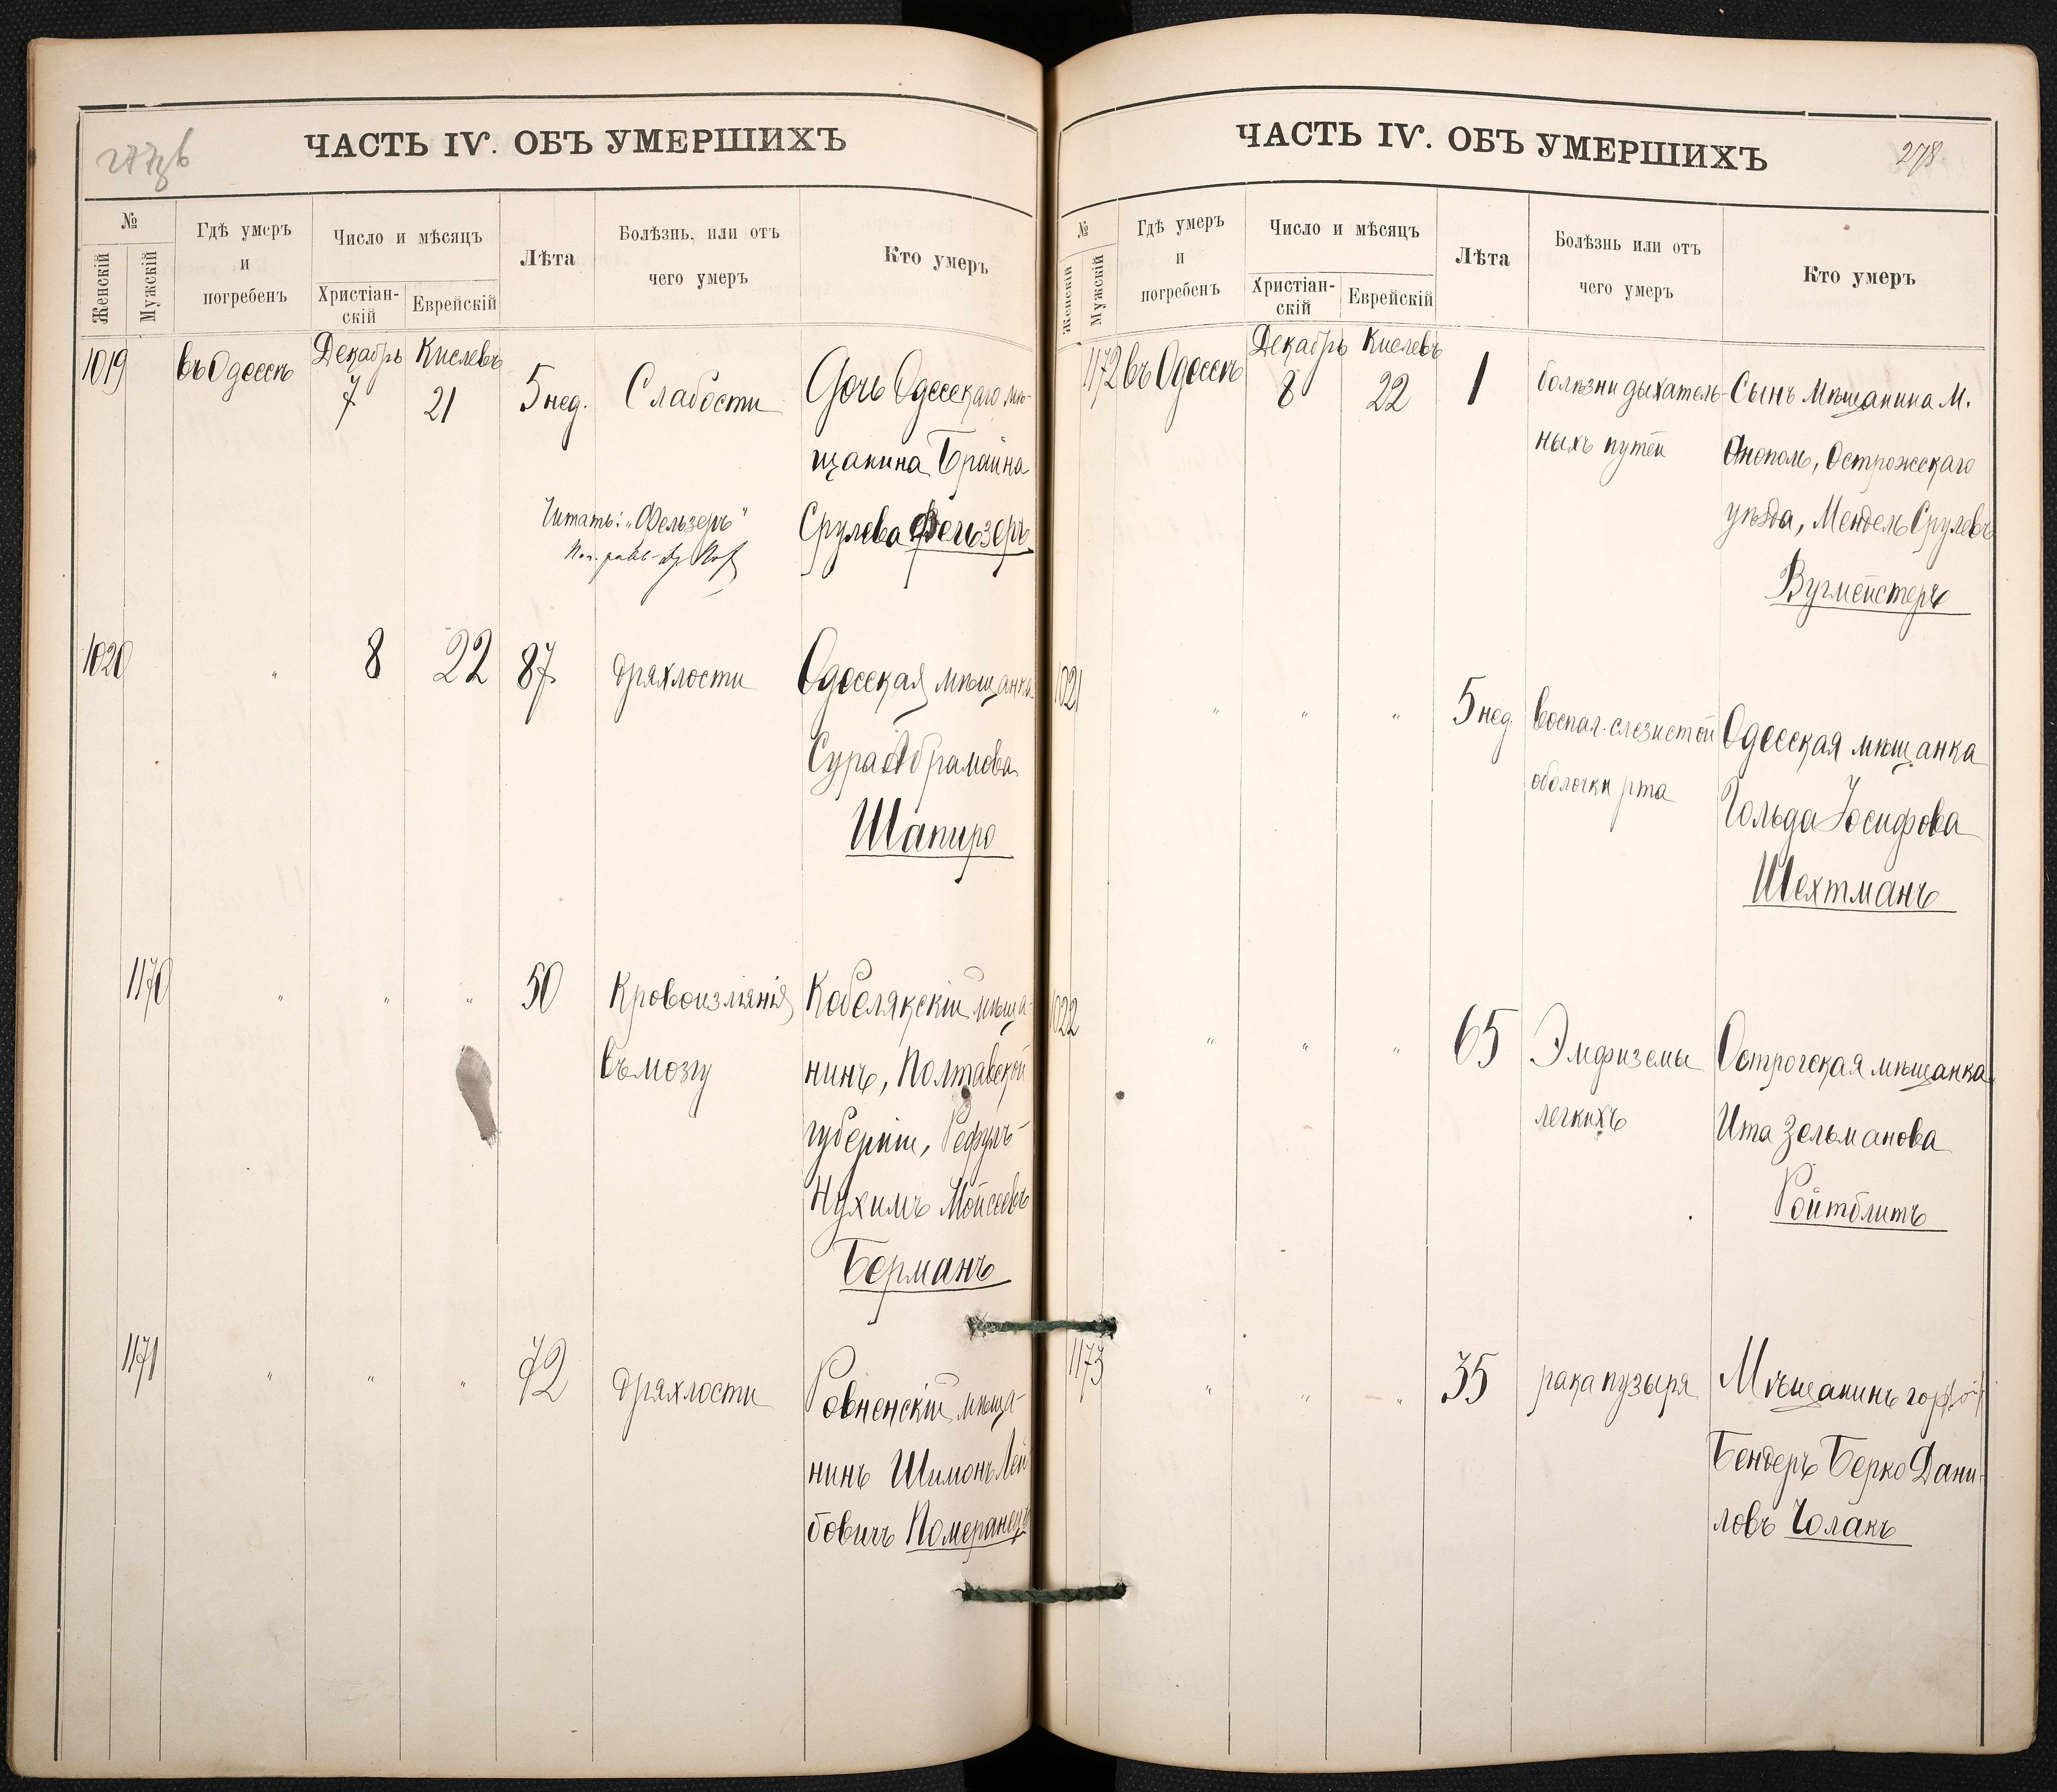 277об
ЧАСТЬ IV. ОБЪ УМЕРШИХЪ
№
Женскій
Мужскій
Гдѣ умеръ
и
погребенъ
Число и мѣсяцъ
Христіан-
скій
Еврейскій
Лѣта
Болѣзнь, или отъ
чего умеръ
Кто умеръ
1019 въ Одессѣ Декабрь 7 Кислевъ 21 5 нед. Слабости Дочь Одесскаго мѣ-
щанина Брайна
Срулева Фельзеръ
Читать: „Фельзеръ"
1020 " 8 22 87 дряхлости Одесская мѣщанка
Сура Абрамова
Шапиро
1170 " " " 50 Кровоизліянія Кобелякскій мѣща-
въ мозгу нинъ, Полтавской
губерніи, Рефулъ-
Нухимъ Мойсеевъ
Берманъ
1171 " " " 72 дряхлости Ровненскій мѣща-
нинъ Шимонъ Лей
бовичъ Померанецъ
278
ЧАСТЬ IV. ОБЪ УМЕРШИХЪ
№
Женскій
Мужскій
Гдѣ умеръ
и
погребенъ
Число и мѣсяцъ
Христіан-
скій
Еврейскій
Лѣта
Болѣзнь или отъ
чего умеръ
Кто умеръ
1172 въ Одессѣ Декабрь 8 Кислевъ 22 1 болѣзни дыхатель- Сынъ Мѣщанина М.
ныхъ путей Анополь, Острожскаго
уѣзда, Мендель Срулевъ
Вугмейстеръ
1021 " " " 5 нед. воспал. слизистой Одесская мѣщанка
оболочки рта Гольда Іосифова
Шехтманъ
1022 " " " 65 Эмфиземы Острогская мѣщанка
легкихъ Ита Зельманова
Ройтблитъ
1173 " " " 35 рака пузыря Мѣщанинъ гор.
Бендеръ Берко Дани-
ловъ Чолакъ